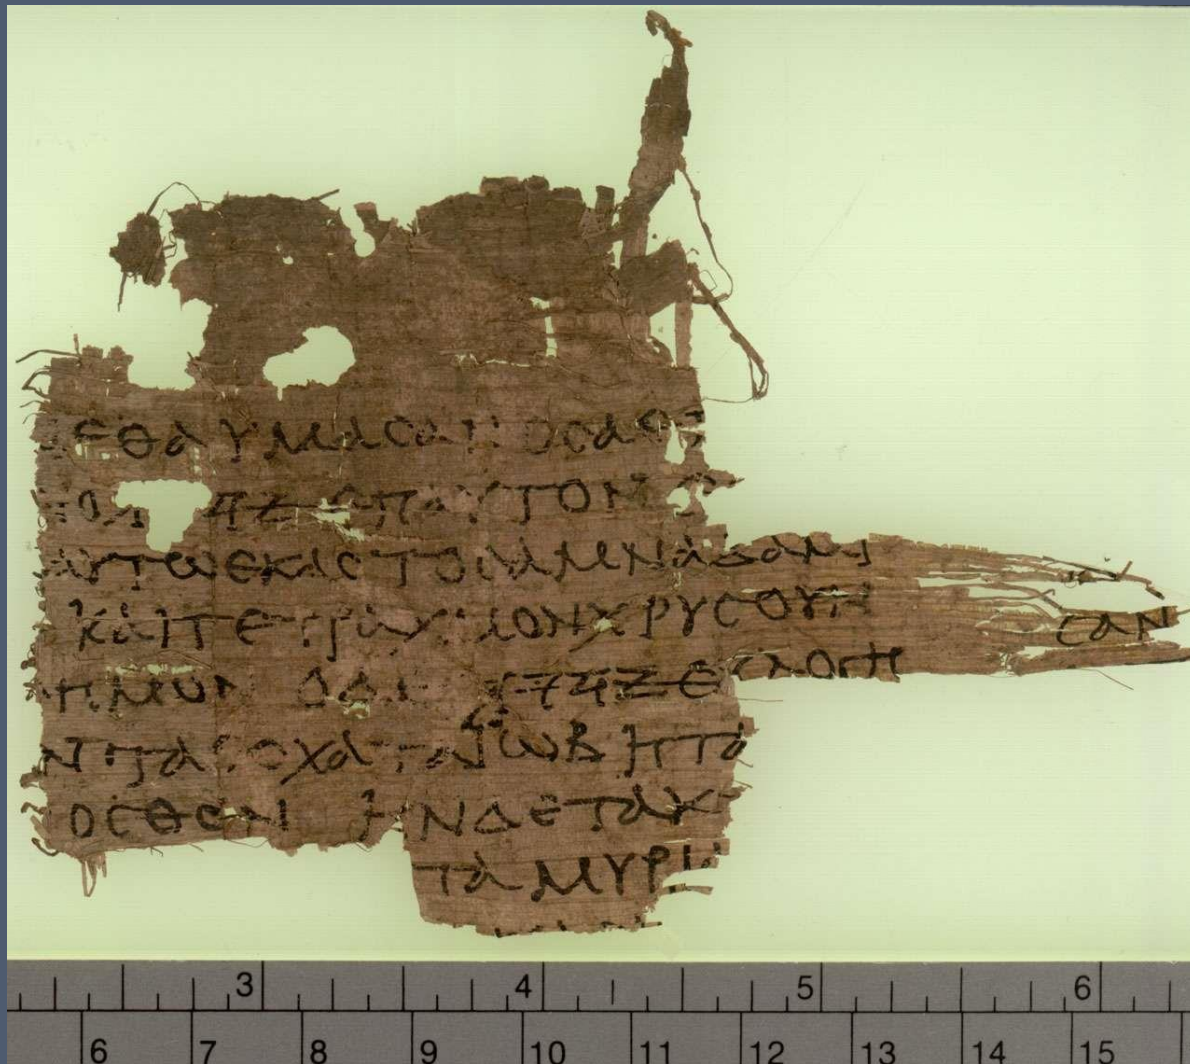 ΕΘΑΥΜΑCΑΝ ΟCΑ
ΕΠΑΥΤΟΝ Ε
ΑΥΤΩΕΚΑCΤΟCΑΜΝΑΔΑΜΙ
ΚΑΙΤΕΤΡΑΧΜΟΝΧΡΥCΟΥΝ CΑΝ
ΗΜΟΝ ΟΔΕ 𐤉𐤄𐤅𐤄 ΕΥΛΟΓΗ
Ν ΤΑ ΕCΧΑΤΑ ΙΩΒ Η ΤΑ
ΟCΘΕΝ ΗΝΔΕΤΑΚ
ΤΑ ΜΥΡΙ
3 4 5 6
6 7 8 9 10 11 12 13 14 15